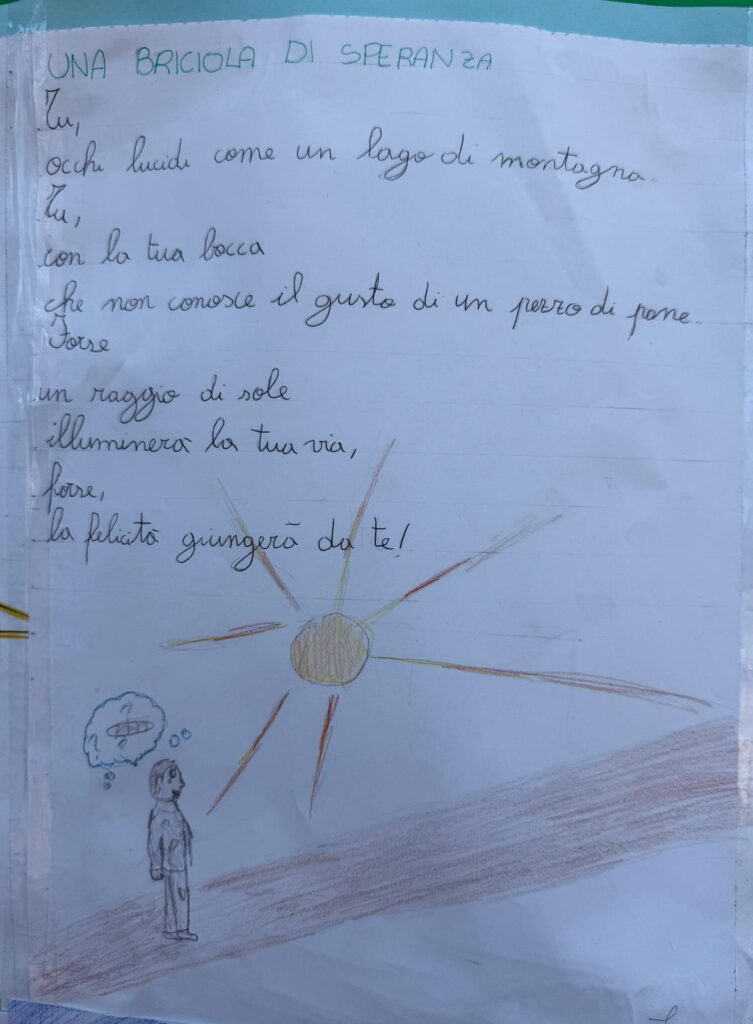 UNA BRICIOLA DI SPERANZA
Tu,
occhi lucidi come un lago di montagna.
Tu,
con la tua bocca
che non conosce il gusto di un pezzo di pane.
Forse
un raggio di sole
illuminerà la tua via,
forse,
la felicità giungerà da te!